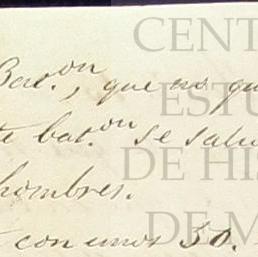 Bat.on, que no qu
te bat.on se salv
hombres.
con unos 50.
CENT
ESTU
DE HIS
DE M